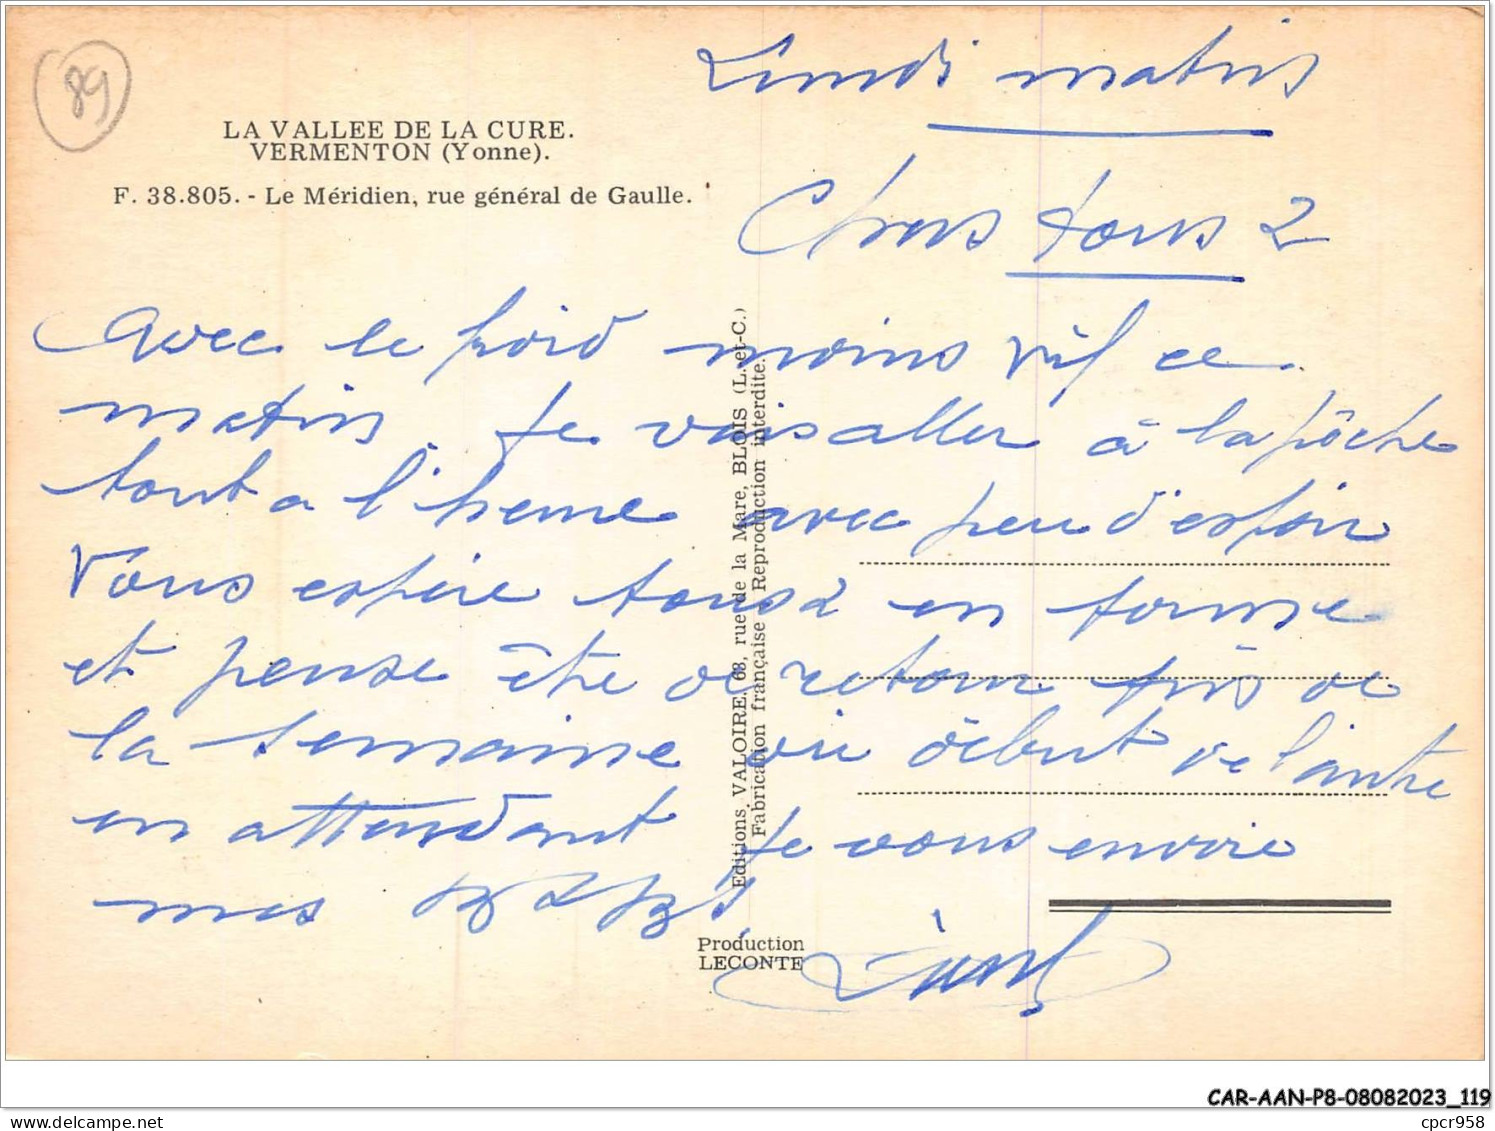 89
LA VALLEE DE LA CURE.
VERMENTON (Yonne).
F. 38.805. - Le Méridien, rue général de Gaulle.
Lundi matin
Chers tous 2
Avec le froid moins vif ce
matin je vais aller à la pêche
tout a l'heure avec peu d'espoir
Vous espère tous 2 en forme
et pense être de retour fin de
la semaine ou début de l'autre
en attendant je vous envoie
mes
Editions VALOIRE, 68, rue de la Mare, BLOIS (L.-et-C.)
Fabrication française Reproduction interdite.
Production
LECONTE
CAR-AAN-P8-08082023_119
cpcr958